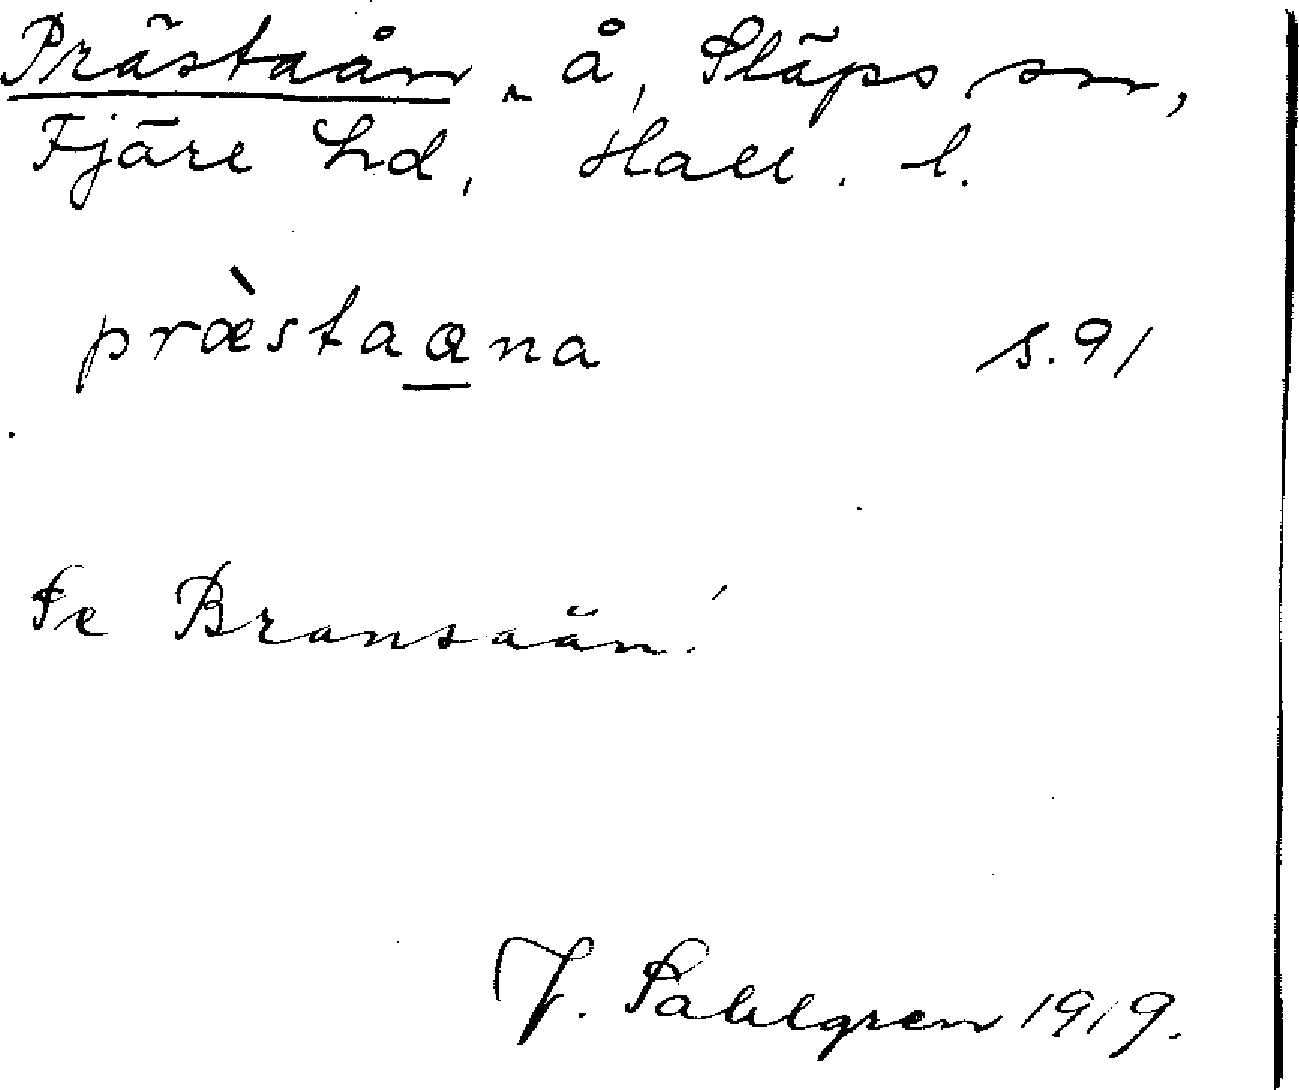 Prästaån, å, Släps sn,
Fjäre hd, Hall. l.
præ̀staana s. 91
Se Bransaån!
J. Sahlgren 1919.